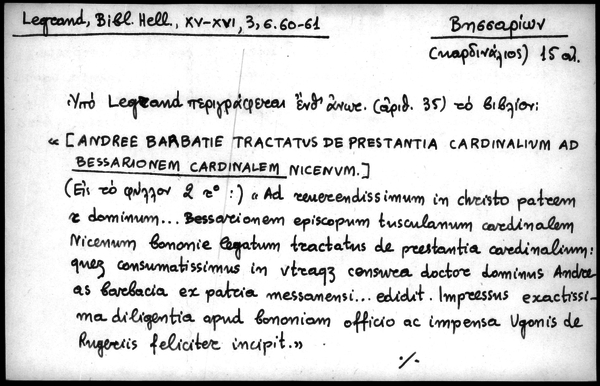 Legrand, Bibl. Hell., XV-XVI, 3, σ. 60-61
Βησσαρίων
(καρδινάλιος) 15 αἰ.
Ὑπὸ Legrand περιγράφεται ἔνθ' ἀνωτ. (ἀριθ. 35) τὸ βιβλίον:
« [ANDREE BARBATIE TRACTATUS DE PRESTANTIA CARDINALIUM AD
BESSARIONEM CARDINALEM NICENVM.]
(Εἰς τὸ φύλλον 2 rº :) « Ad reuerendissimum in christo patrem
τ dominum... Bessarionem episcopum tusculanum cardinalem
Nicenum bononie legatum tractatus de prestantia cardinalium:
quez consumatissimus in vtraqz censura doctor dominus Andre
as barbacia ex patria messanensi... edidit. Impressus exactissi-
ma diligentia apud bononiam officio ac impensa Ugonis de
Rugeriis feliciter incipit.»
./.